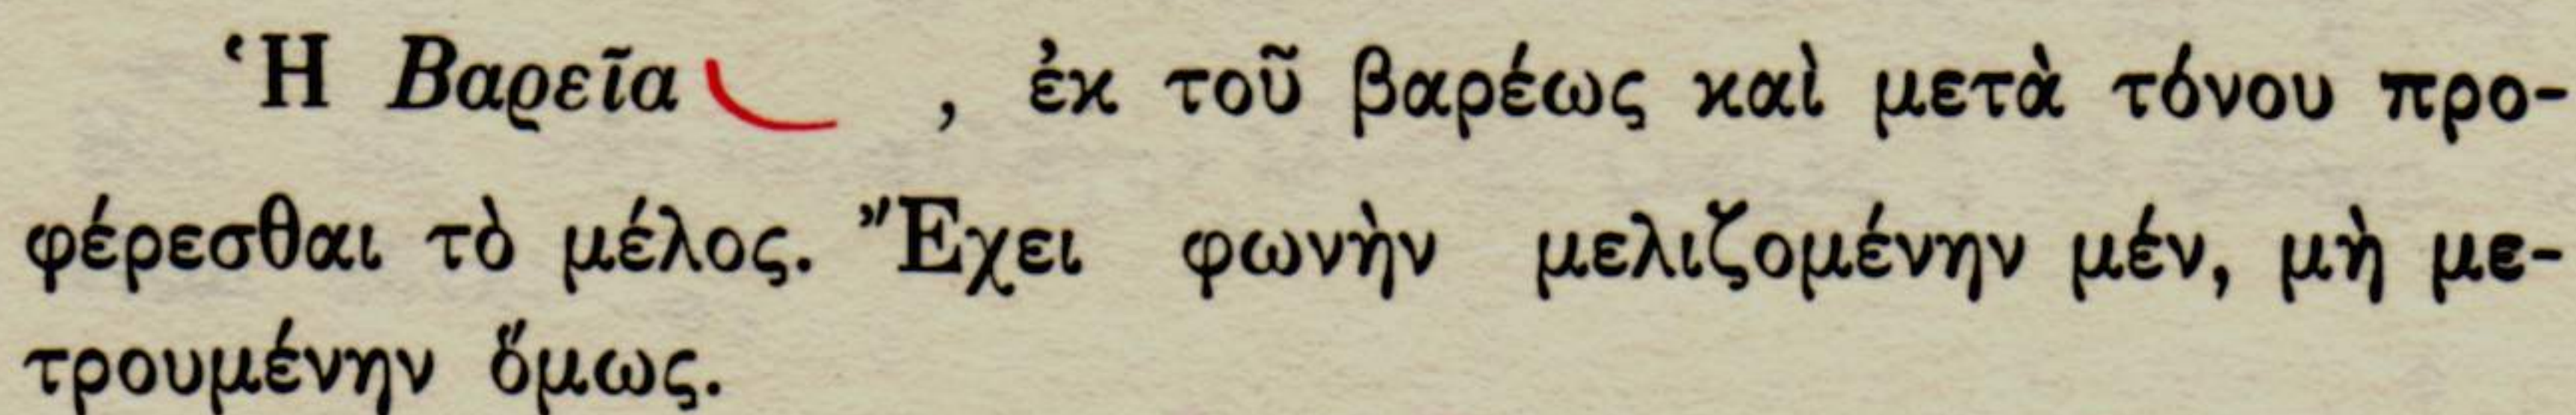 Ἡ Βαρεῖα , ἐκ τοῦ βαρέως καὶ μετὰ τόνου προ-
φέρεσθαι τὸ μέλος. Ἔχει φωνὴν μελιζομένην μέν, μὴ με-
τρουμένην ὅμως.